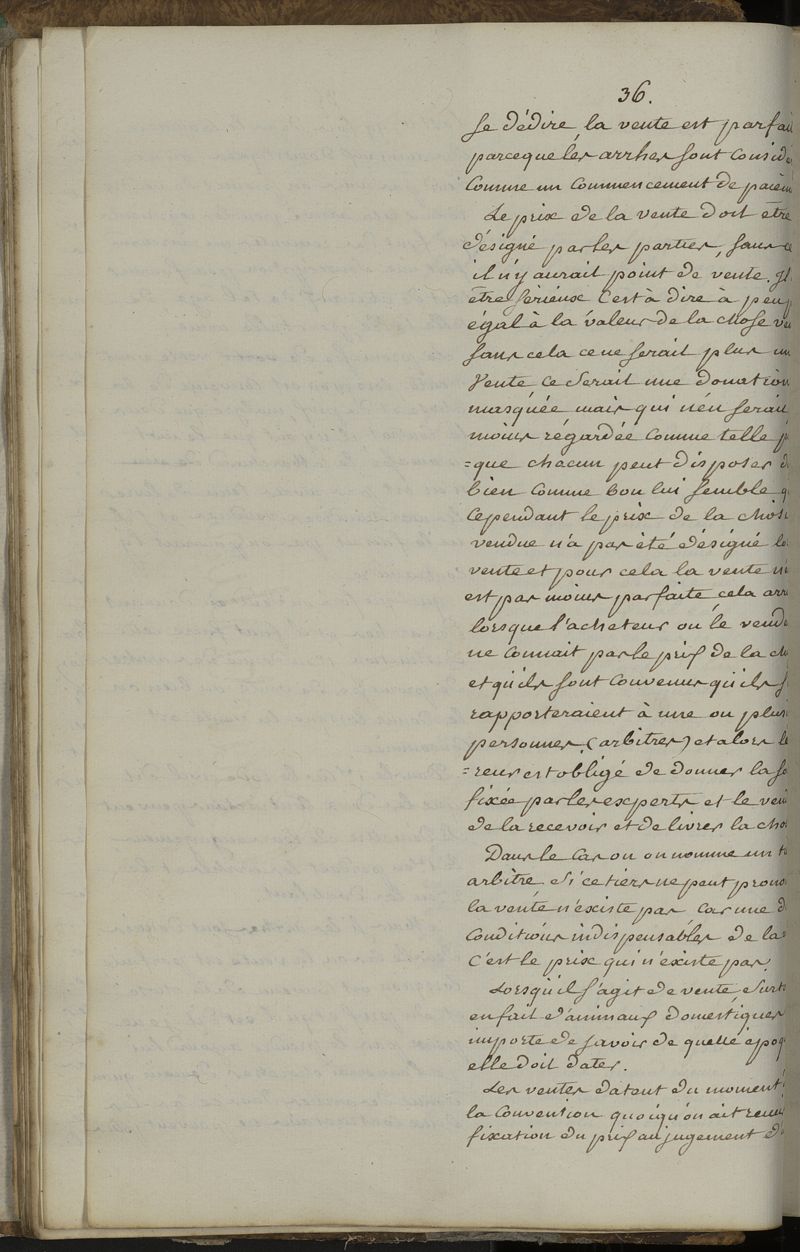 36.
se dédire, la vente est parfai
parceque les arrhes sont consid
comme un commencement de paiem
Le prix de la vente doit être
désigné par les parties, sans c
il n'y aurait point de vente. Il
être sérieux c'est à dire à peu p
égal à la valeur de la chose ve
sans cela ce ne serait plus un
vente ce serait une donation
masquée mais qui n'en serait
moins régardée comme telle p
=que chacun peut disposer d
bien comme bon lui semble q
cependant le prix de la chos
vendue n'a pas été désigné lo
vente et pour cela la vente n'
est pas moins parfaite, cela arr
lorsque l'acheteur ou le vende
ne connait pas le prix de la cho
et qu'ils sont convenus qu'ils s
rapporteraient à une ou plusi
personnes (arbitres) et alors l
=reur est obligé de donner la so
fixée par les experts et le vend
de la recevoir et de livrer la chos
Dans le cas ou on nomme un ti
arbitre, si ce tiers ne peut prono
la vente n'existe pas, car une d
conditions indispensables de la
c'est le prix qui n'existe pas.
Lorsqu'il s'agit de vente, surt
en fait d'animaux domestiques
importe de savoir de quelle époq
elle doit dater.
Les ventes datent du moment
la convention quoiqu'on ait remi
fixation du prix au jugement d